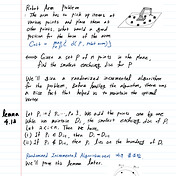 Robot Arm Problem
- The arm has to pick up items at
various points and place them at
other points, what would a good
position for the base of the arm
Cost =
Given a set P of n points in the plane,
find the smallest enclosing disc for P
We'll give a randomized incremental algorithm
for the problem, before doing the algorithm, there was
a nice fact that helped us to maintain the optimal
vector
lemma
4.14
Let P, = { P, ... }, We add the points one by one
while we maintain Di, the smallest enclosing disc of Pi
Let 2<i<n. Then we have,
(i) If Pi ∈ Di-1, then Di = Di-1
(ii) If Pi ∉ Di-1, then Pi lies on the boundary of Di
Randomized Incremental Algorithm
We'll prove the lemma later.